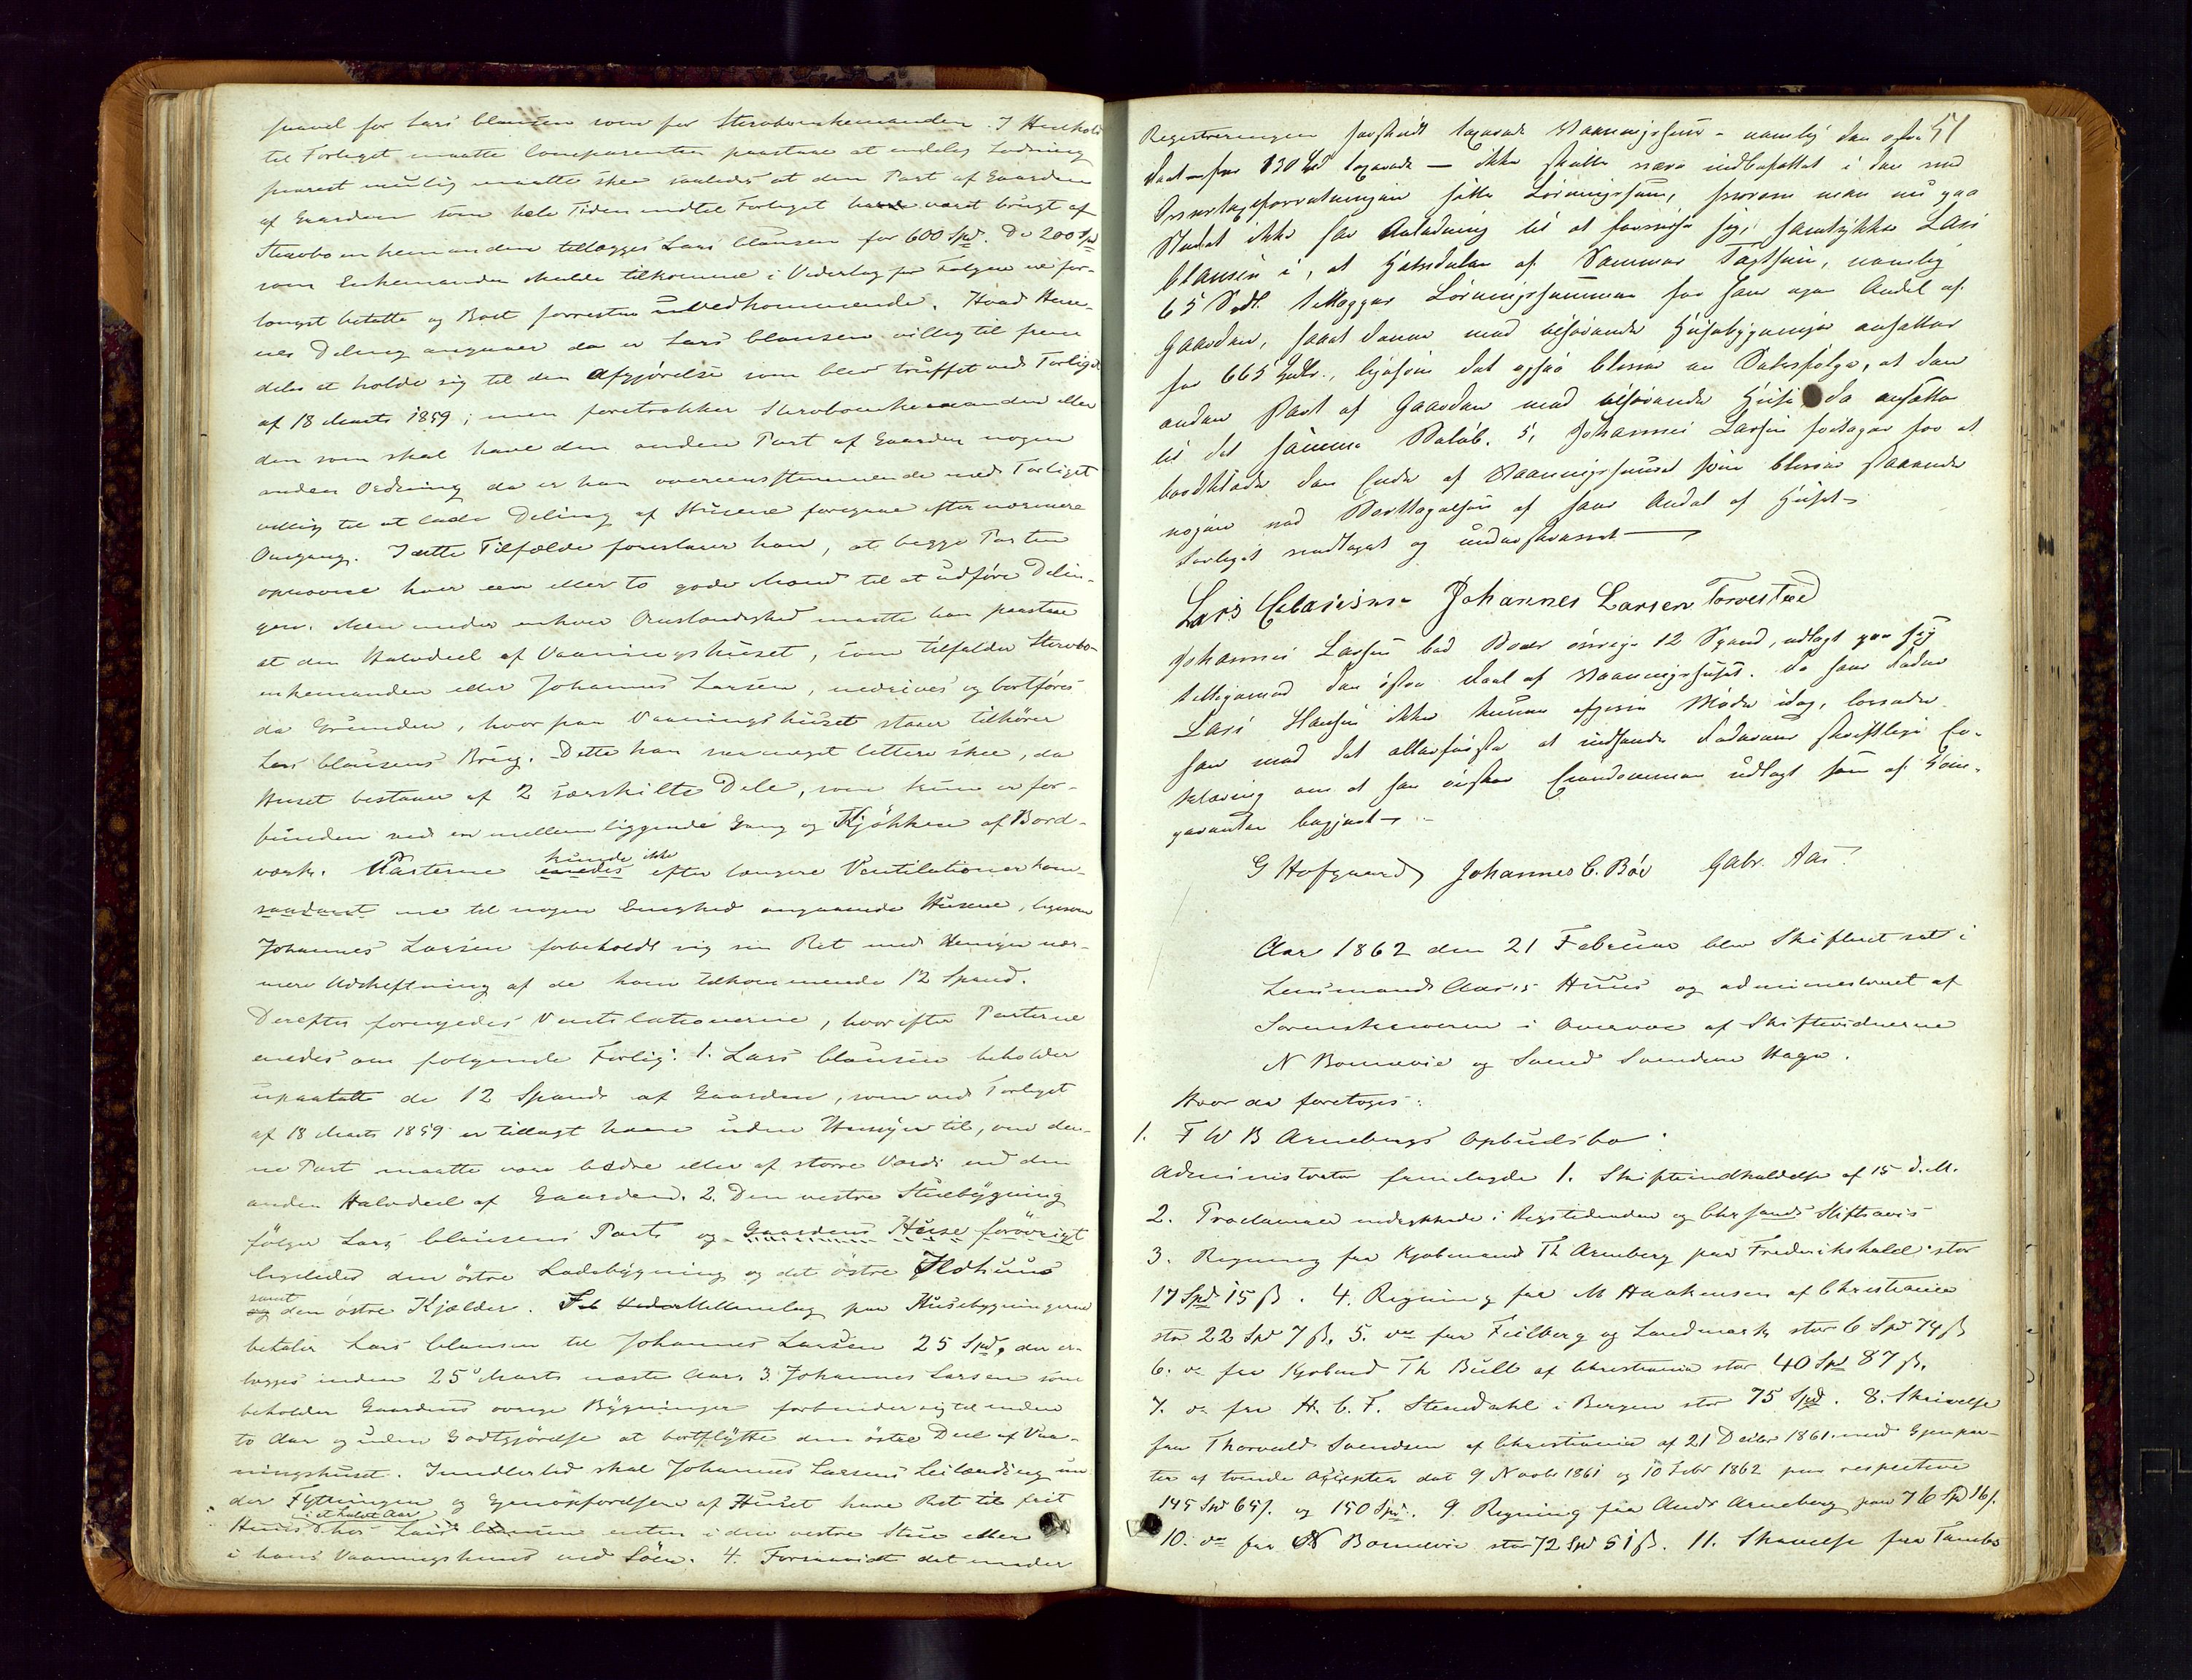 saavel for Lars Clausen som for Stervboenkemanden. I Henhold
til Forliget maatte Comparenten paastaae at endelig Lodning
snarest mulig maatte skee saaledes at den Part af Gaarden
af Gaarden som hele Tiden indtil Forliget havde været brugt af
Stervboenkemanden tillægges Lars Clausen for 600 Spd. De 200 Spd
som Enkemanden skulde tilkomme i Vederlag for Følgen ere for-
længst betalte og Boet forresten uvedkommende. Hvad Huse-
nes Deling angaaer da er Lars Clausen villig til frem-
deles at holde sig til den Afgjörelse som blev truffet ved Forliget
af 18 Marts 1859; men foretrækker Stervboenkemanden eller
den som skal have den anden Part af Gaarden nogen
anden Ordning da er han overeensstemmende med Forliget
villig til at lade Deling af Husene foregaae efter nærmere
Omgang. I dette Tilfælde foreslaaer han, at begge Parter
opnævne hver een eller to gode Mænd til at udföre Delin-
gen. Men under enhver Omstændighed maatte han paastaae
at den Halvdeel af Vaaningshuset, som tilfalder Stervbo-
enkemanden eller Johannes Larsen, nedrives og bortföres
da Grunden, hvorpaa Vaaningshuset staaer tilhörer
Lars Clausens Brug. Dette kan saameget lettere skee, da
Huset bestaaer af 2 særskilte Dele, som kun er for-
bunden ved en mellemliggende Gang og Kjökken af Bord-
værk. Parterne kunde ikke enedes efter længere Ventilationer kom-
saadant me til nogen Enighed angaaende Husene, ligesom
Johannes Larsen forbeholdt sig sin Ret med Hensyn nær-
mere Udskiftning af de ham tilkommende 12 Spand.
Derefter fornyedes Ventilationerne, hvorefter Parterne
enedes om folgende Forlig: 1. Lars Clausen beholder
upaatalt de 12 Spand af Gaarden, som ved Forliget
af 18 Marts 1859 er tillagt ham uden Hensyn til, om den-
ne Part maatte være bedre eller af större Værdi end den
anden Halvdeel af Gaarden. 2. Den vestre Stuebÿgning
fölger Lars Clausens Part og Gaardens Huse forövrigt
ligeledes den östre Ladebygning og det östre Ildhuus
og samt den östre Kjælder. Mellemlag paa Husebygningerne
betaler Lars Clausen til Johannes Larsen 25 Spd, der er-
lægges inden 25 Marts næste Aar. 3. Johannes Larsen som
beholder Gaardens övrige Bÿgninger forbinder sig til inden
to Aar og uden Godtgjörelse at bortflytte den östre Deel af Vaa-
ningshuset. Imidlertid skal Johannes Larsens Leilænding un-
der Flytningen og Gjenopförelsen af Huset have Ret til frit
Huus i et halvt Aar hos Lars Clausen enten i den vestre Stue eller
i hans Vaaningshuus ved Söen. 4. Forsaavidt det under
51
Registreringen særskildt taxerede Vaaningshuus - nemlig den östre
Deel - for 130 Spd taxerede - ikke skulle være indbefattet i den ved
Overtaxtforretningen satte Lösningssum, hvorom man nu paa
Stedet ikke har Anledning til at forvisse sig, samtykker Lars
Clausen i, at Halvdelen af Samme Taxtsum, nemlig
65 Spdl. tillægges Lösningssummen for hans egen Andel af
Gaarden, saaat denne med tilhörende Husebygninger ansættes
for 665 Spdlr., ligesom det ogsaa bliver en Selvfölge, at den
anden Part af Gaarden med tilhörende Huse da ansættes
til det samme Belöb. 5, Johannes Larsen foretager sig at
bordklæde den Ende af Vaaningshuset som bliver staaende
nögen ved Borttagelsen af hans Andel af Huset -
Forliget vedtaget og underskrevet -
Lars Clausen Johannes Larsen Torvestad
Johannes Larsen bad Boets övrige 12 Spand, udlagt paa sig
tilligemed den östre Deel af Vaaningshuset. Da hans Fader
Lars Hansen ikke kunne afgive Möde idag, lovede
han med det allerförste at indsende Faderens skriftlige Er-
klæring om at han önsker Eiendommen udlagt som af Com-
parenten begjært -
G Hofgaard Johannes C. Böe Gabr. Aas
Aar 1862 den 21 Februar blev Skifteret sat i
Lensmand Aas's Huus og administreret af
Sorenskriveren i Overvær af Skiftevidnerne
N Bonnevie og Svend Svendsen Hagen.
Hvor da foretoges:
1. F W B Arnebergs Opbudsbo:
Administrator fremlagde 1. Skifteindkaldelse af 15 d.M.
2. Proclamaer indrykkede i Rigstidenden og Chrsands Stiftsavis
3. Regning fra Kjöbmand Th Arneberg paa Frederikshald stor
17 Spd 15 ß. 4. Regning fra M Haakensen af Christiania
stor 22 Spd 7 ß. 5. do fra Fuilberg og Landmark stor 6 Spd 74 ß
6. do fra Kjöbmd Th Bull af Christiania stor 40 Spd 87 ß.
7. do fra H. C. F. Stendahl i Bergen stor 75 Spd. 8. Skrivelse
fra Thorvald Svendsen af Christiania af 21 Decbr 1861 med Gjenpar-
ter af tvende Accepter dat 9 Novbr 1861 og 10 Febr 1862 paa respective
145 Spd 65 ß. og 150 Spd. 9. Regning fra Ands Arneberg paa 76 Spd 16 ß.
10. do fra N Bonnevie stor 72 Spd 51 ß. 11. Skrivelse fra